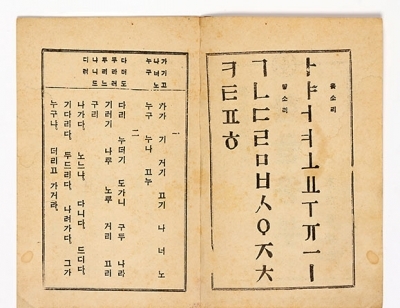 홀소리
ㅏㅑㅓㅕㅗㅛㅜㅠㅡㅣ
닿소리
ㄱㄴㄷㄹㅁㅂㅅㅇㅈㅊ
ㅋㅌㅍㅎ
가기고
나너노
누구
一
가가 기 거기 고기 나 너 노
누구 누나 고누
다더도
두라러
루리느
二
다리 누더기 도가니 구두 나라
기러기 나루 노루 거리 고리
구리
나가다. 노느나. 다니다. 드디다.
기다리다. 두드리다. 나려가다. 그가
누구냐. 더리고 가거라.